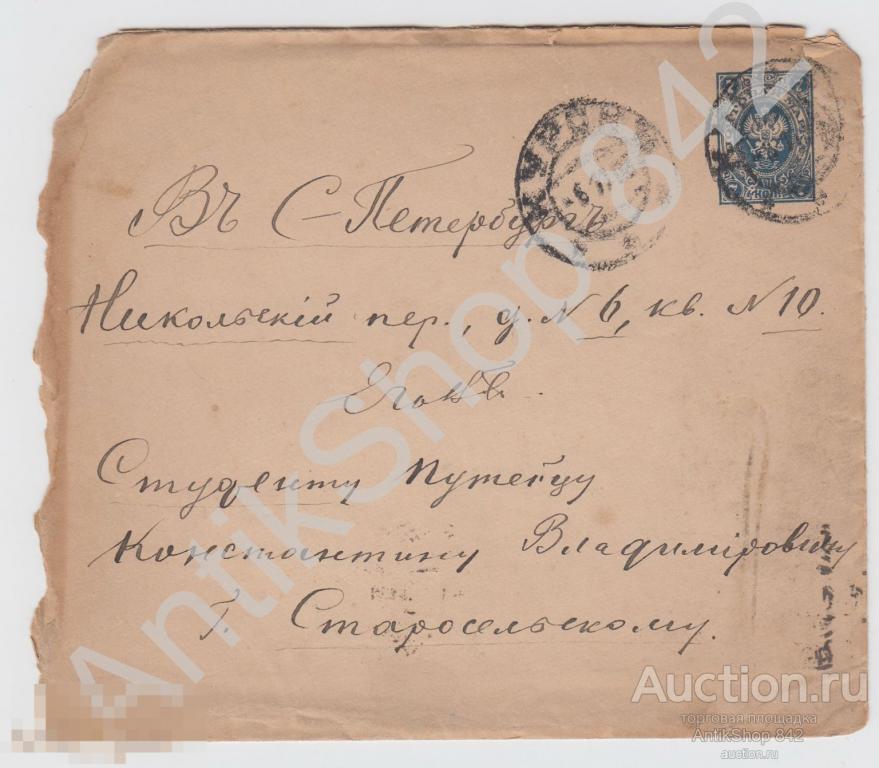 Въ С-Петербургъ
Никольскій пер., д. № 6, кв. № 10.
Студенту Путейцу
Константину Владиміровичу
Г. Старосельскому.
AntikShop 842
Auction.ru
торговая площадка
AntikShop 842
auction.ru